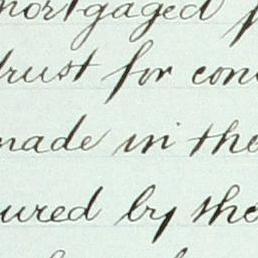 mortgaged
trust for con
made in the
ured by the